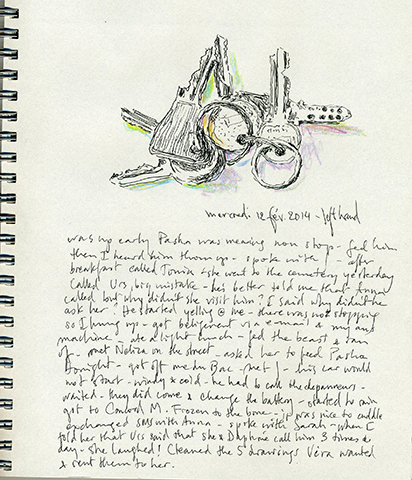 mercredi 12 fév. 2014 - left hand
was up early Pasha was meowing non stop - fed him
then I heard him throw up - spoke with J - after
breakfast called Tonia & she went to the cemetery yesterday
called Urs, big mistake - he's better told me that
called but why didn't she visit him? I said why didn't he
ask her? He started yelling @ me - there was no stopping
so I hung up - got belligerent via e-mail & my ans
machine - ate a light lunch - fed the beast & ran
off - met Neliza on the street - asked her to feed Pasha
tonight - got off rue du Bac - met J - his car would
not start - windy & cold - he had to call the depanneurs -
waited - they did come & change the battery - started to rain
got to Conbord M. Frozen to the bone - jp was nice to cuddle
exchanged sms with Anna - spoke with Sarah - when I
told her that Urs said that she & Daphne call him 3 times a
day - she laughed! Cleaned the 5 drawings Vera wanted
& sent them to her.